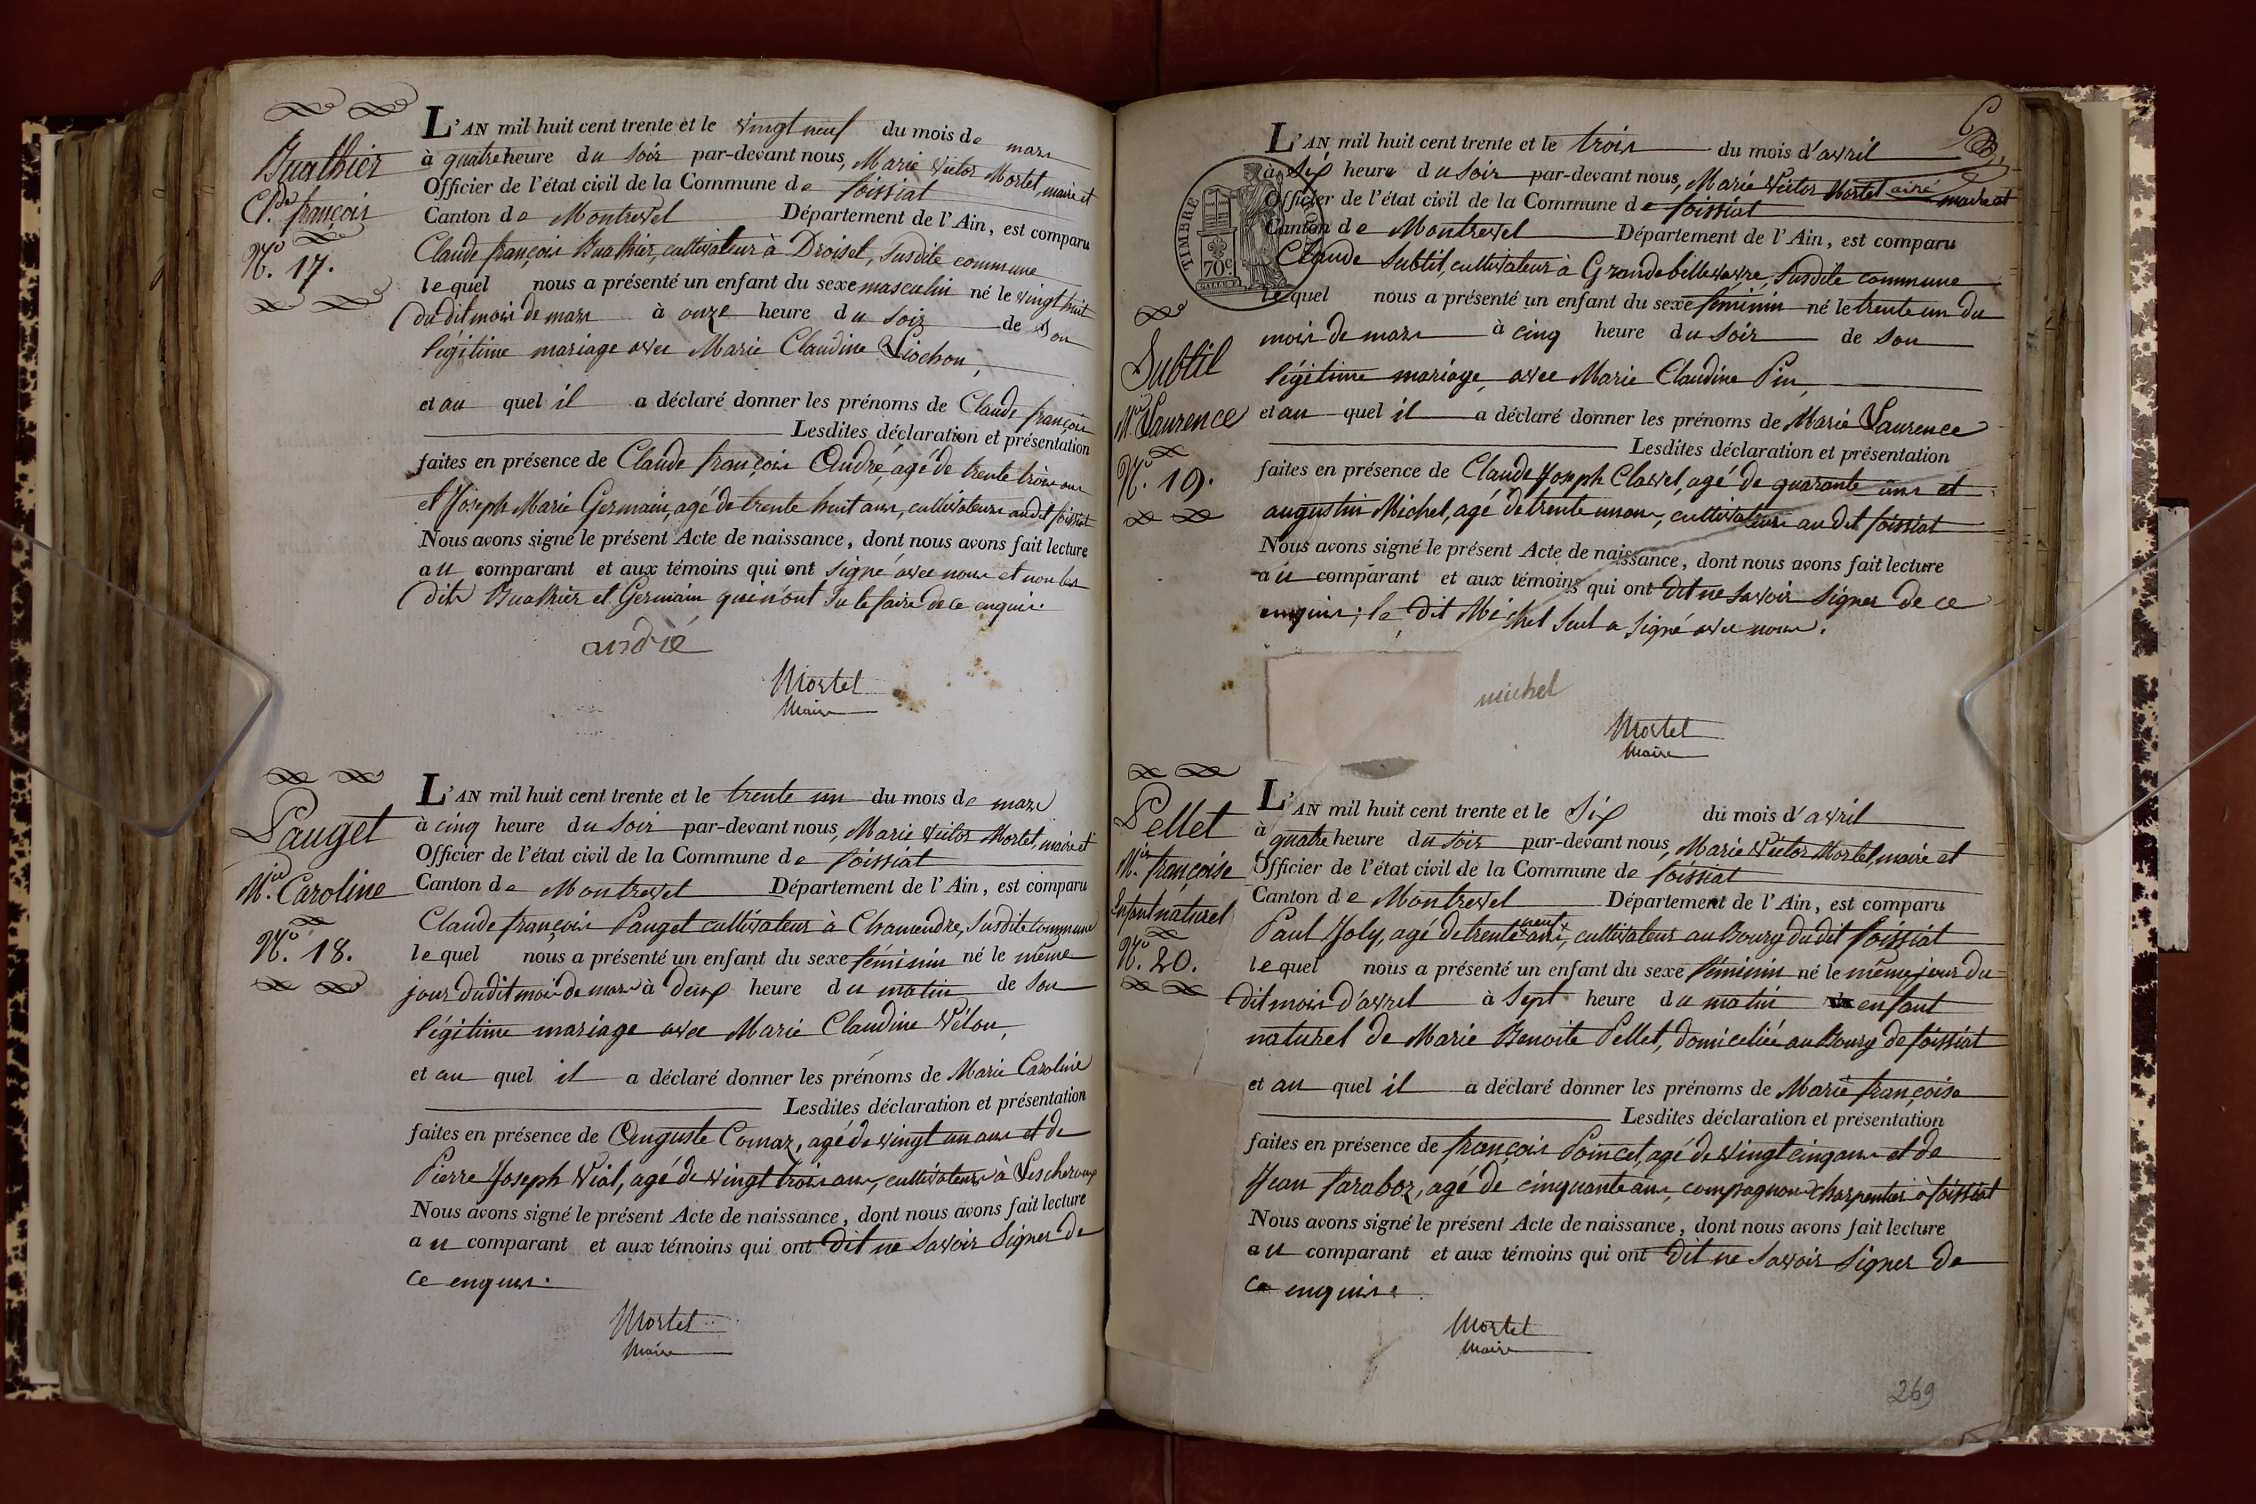 Buathier
Cl.de françois
N.o 17.
L'AN mil huit cent trente et le vingt neuf du mois de mars
à quatre heure du soir par-devant nous, Marie Victor Mortel, maire et
Officier de l'état civil de la Commune de foissiat
Canton de Montrevel Département de l'Ain, est comparu
Claude françois Buathier, cultivateur à Droiset, susdite commune
lequel nous a présenté un enfant du sexe masculin né le vingt huit
du dit mois de mars à onze heure du soir de son
légitime mariage avec Marie Claudine Liochon,
et au quel il a déclaré donner les prénoms de Claude françois
Lesdites déclaration et présentation
faites en présence de Claude françois André, agé de trente trois ans
et Joseph Marie Germain, agé de trente huit ans, cultivateurs audit foissiat
Nous avons signé le présent Acte de naissance, dont nous avons fait lecture
au comparant et aux témoins qui ont signé avec nous et non les
dits Buathier et Germain qui n'ont su le faire de ce enquis.
andré
Mortel
Maire
Pauget
M.ie Caroline
N.o 18.
L'AN mil huit cent trente et le trente un du mois de mars
à cinq heure du soir par-devant nous, Marie Victor Mortel, maire et
Officier de l'état civil de la Commune de foissiat
Canton de Montrevel Département de l'Ain, est comparu
Claude françois Pauget cultivateur à Chamendre, susdite commune
lequel nous a présenté un enfant du sexe féminin né le même
jour dudit mois de mars à deux heure du matin de son
légitime mariage avec Marie Claudine Vélon,
et au quel il a déclaré donner les prénoms de Marie Caroline
Lesdites déclaration et présentation
faites en présence de Auguste Comaz, agé de vingt un ans et de
Pierre Joseph Vial, agé de vingt trois ans, cultivateurs à Lescheroux
Nous avons signé le présent Acte de naissance, dont nous avons fait lecture
au comparant et aux témoins qui ont dit ne savoir signer de
ce enquis.
Mortel
Maire
TIMBRE
70c
Subtil
M.ie Laurence
N.o 19.
L'AN mil huit cent trente et le trois du mois d'avril
à six heure du soir par-devant nous, Marie Victor Mortel maire et
Officier de l'état civil de la Commune de foissiat
Canton de Montrevel Département de l'Ain, est comparu
Claude Subtil, cultivateur à Grandebellevavre, susdite commune
lequel nous a présenté un enfant du sexe féminin né le trente un du
mois de mars à cinq heure du soir de son
légitime mariage avec Marie Claudine Pin,
et au quel il a déclaré donner les prénoms de Marie Laurence
Lesdites déclaration et présentation
faites en présence de Claude Joseph Clavel, agé de quarante ans et
augustin Michel, agé de trente un ans, cultivateurs au dit foissiat
Nous avons signé le présent Acte de naissance, dont nous avons fait lecture
au comparant et aux témoins qui ont dit ne savoir signer de ce
enquis; le dit Michel seul a signé avec nous.
michel
Mortel
Maire
Pellet
M.ie françoise
Enfant naturel
N.o 20.
L'AN mil huit cent trente et le six du mois d'avril
à quatre heure du soir par-devant nous, Marie Victor Mortel, maire et
Officier de l'état civil de la Commune de foissiat
Canton de Montrevel Département de l'Ain, est comparu
neuf
Paul Joly, agé de trente ans, cultivateur au Bourg du dit foissiat
lequel nous a présenté un enfant du sexe féminin né le même jour du
dit mois d'avril à sept heure du matin enfant
naturel de Marie Benoite Pellet, domiciliée au Bourg de foissiat
et au quel il a déclaré donner les prénoms de Marie françoise
Lesdites déclaration et présentation
faites en présence de françois Poincet, agé de vingt cinq ans et de
Jean faraboz, agé de cinquante ans, compagnon charpentier à foissiat
Nous avons signé le présent Acte de naissance, dont nous avons fait lecture
au comparant et aux témoins qui ont dit ne savoir signer de
ce enquis.
Mortel
Maire
269